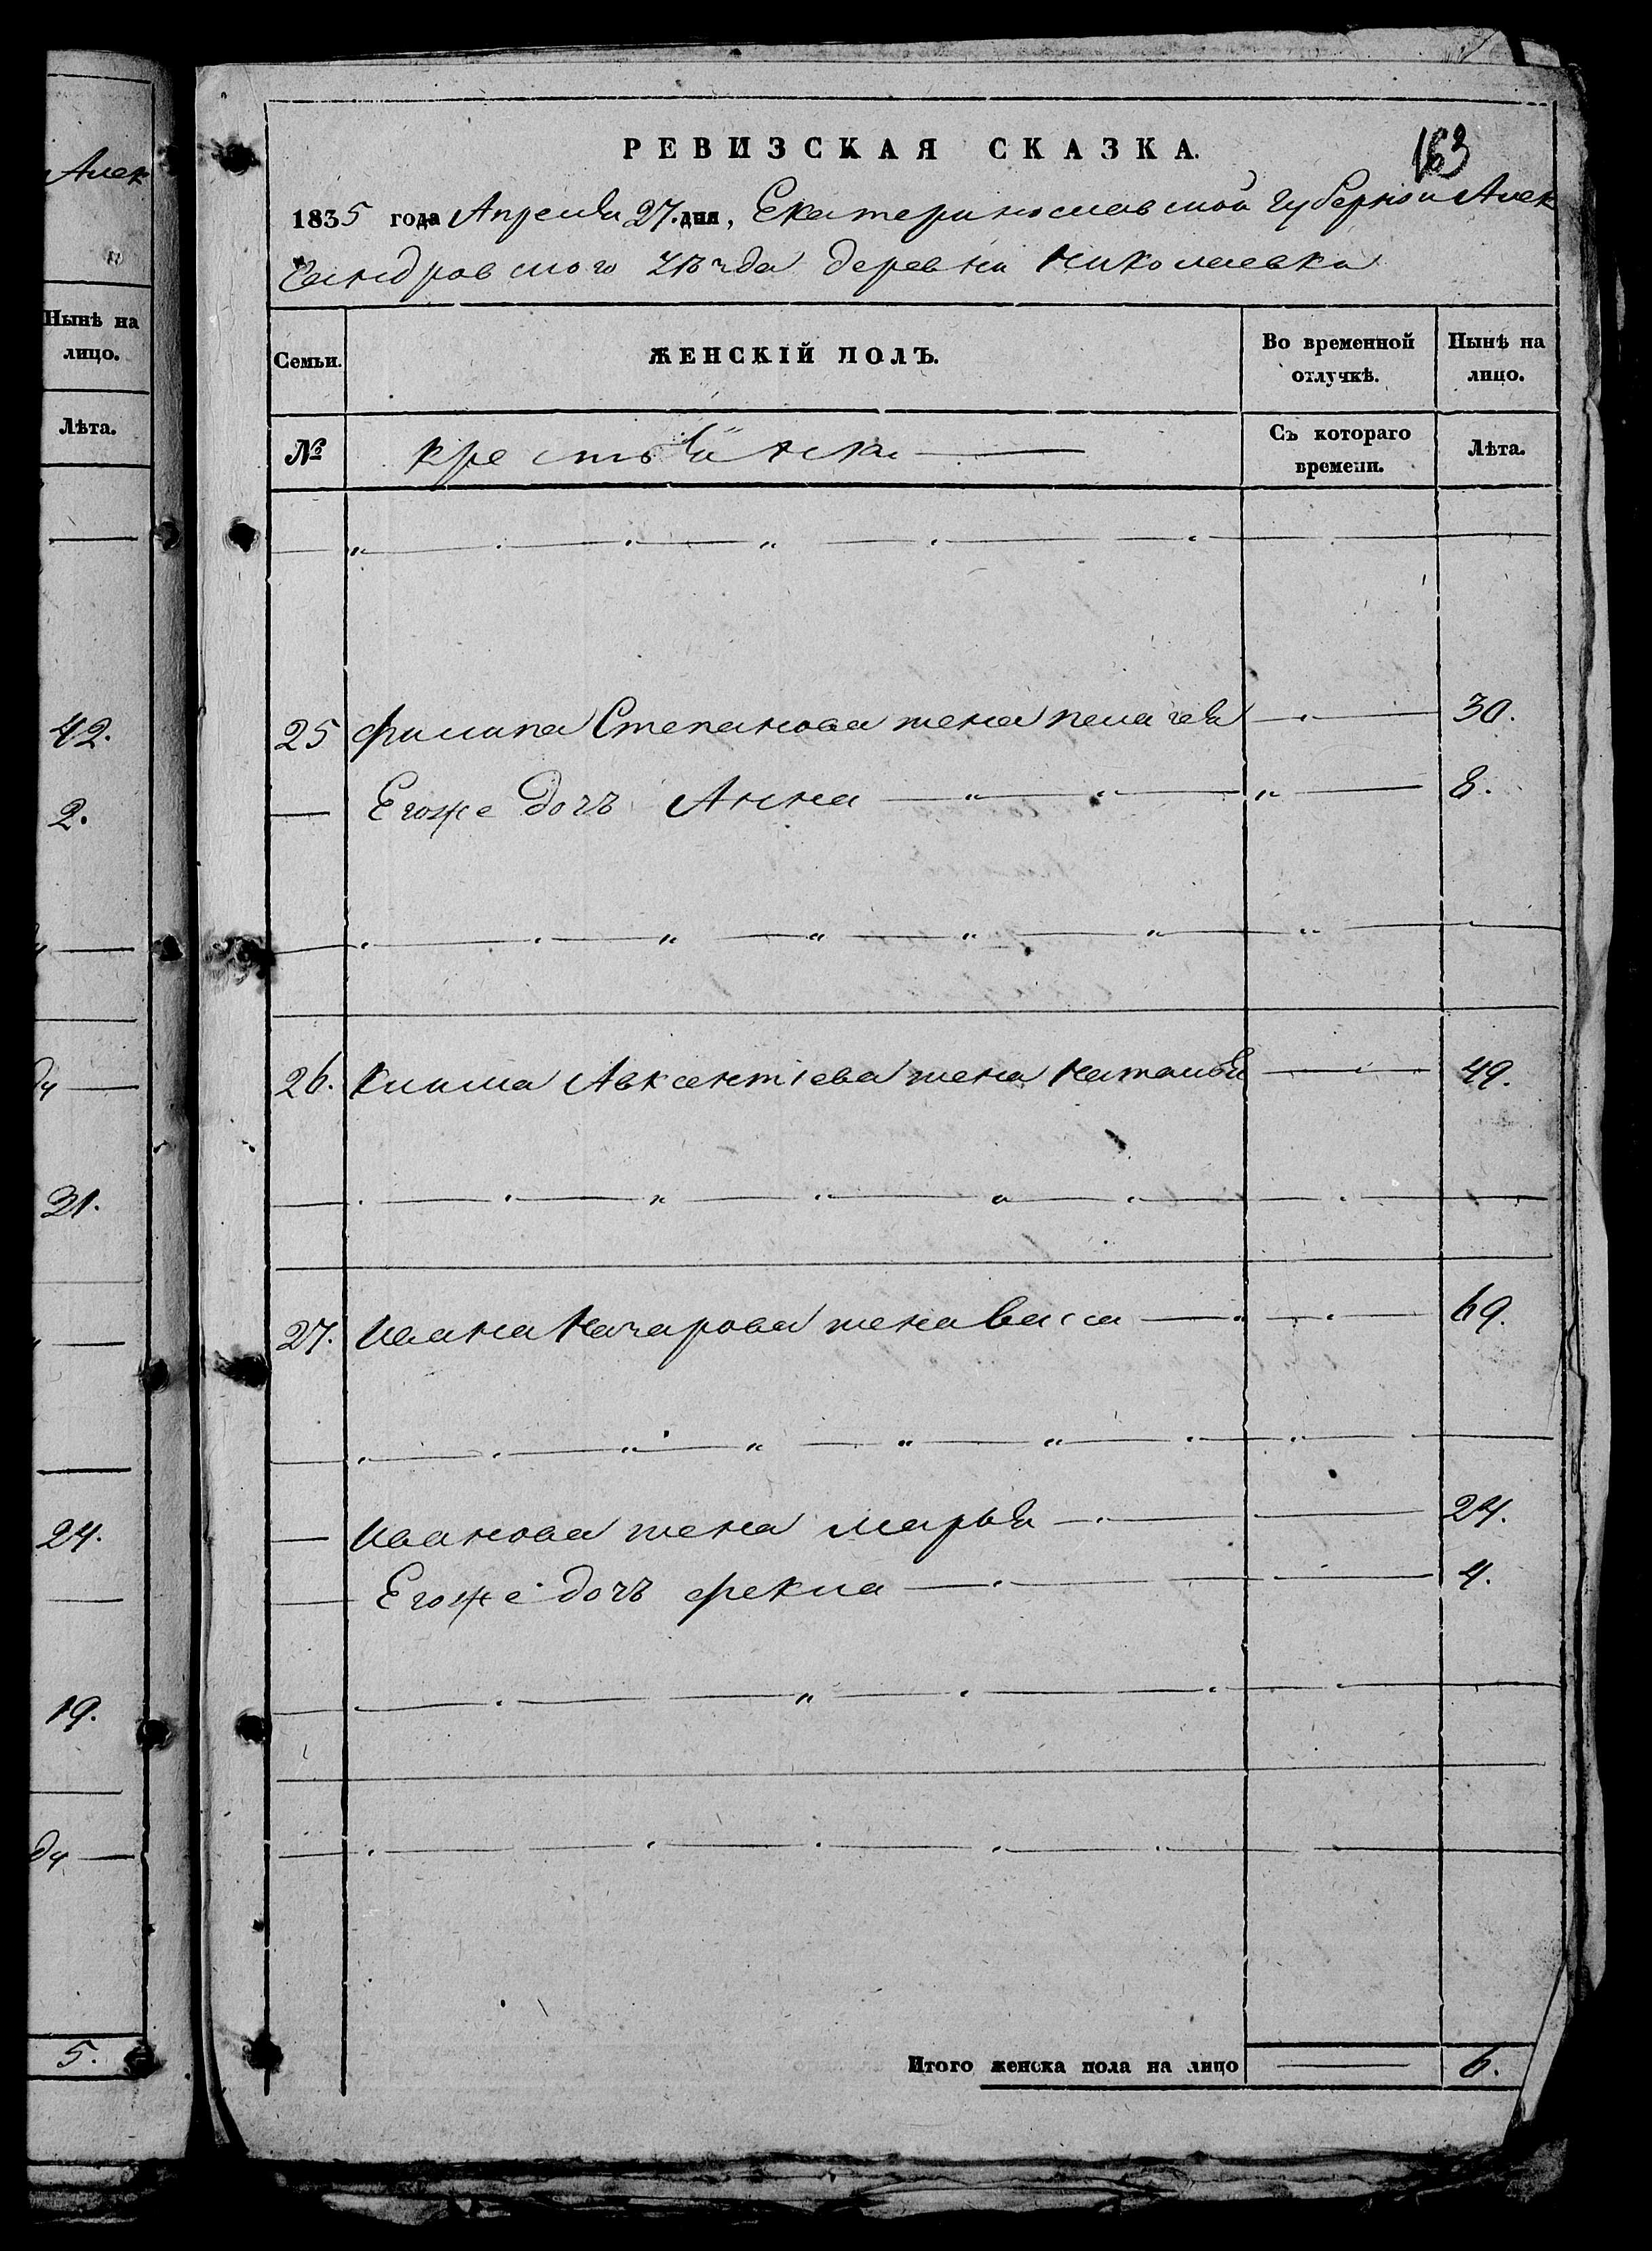 Алек
Нынѣ на
лицо.
Лѣта.
42.
2.
ду
31.
24.
19.
ду
5.
РЕВИЗСКАЯ СКАЗКА.
163
1835 года Апреля 27. дня, Екатеринославской губернии Алек
сандровского уѣзда деревни Николаевки
Семьи.
ЖЕНСКІЙ ПОЛЪ.
Во временной отлучкѣ.
Нынѣ на лицо.
№
крестьянска
Съ котораго времени.
Лѣта.
25 Филипа Степанова жена пелагея 30.
Егоже дочь Анна 8.
26. Клима Авксентіева жена Наталья 49.
27. Ивана Качарова жена Васса 69.
Иванова жена Марья 24.
Егоже дочь фекла 4.
Итого женска пола на лицо 6.